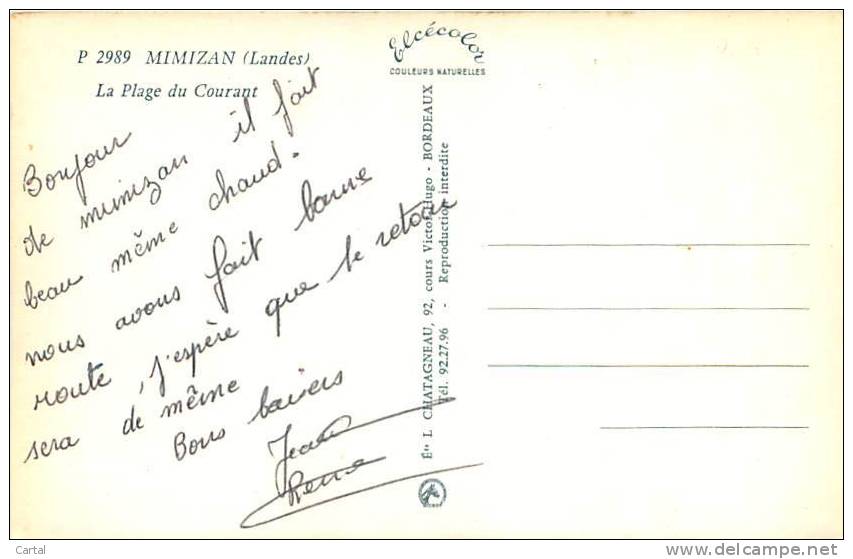 P 2989 MIMIZAN (Landes)
La Plage du Courant
Elcécolor
COULEURS NATURELLES
Bonjour
de mimizan il fait
beau même chaud.
nous avons fait bonne
route, j'espère que le retour
sera de même
Bons baisers
Jean
Rene
Éts L. CHATAGNEAU, 92, cours Victor-Hugo - BORDEAUX
Tél. 92.27.96 - Reproduction interdite
Cartal
delcampe.net